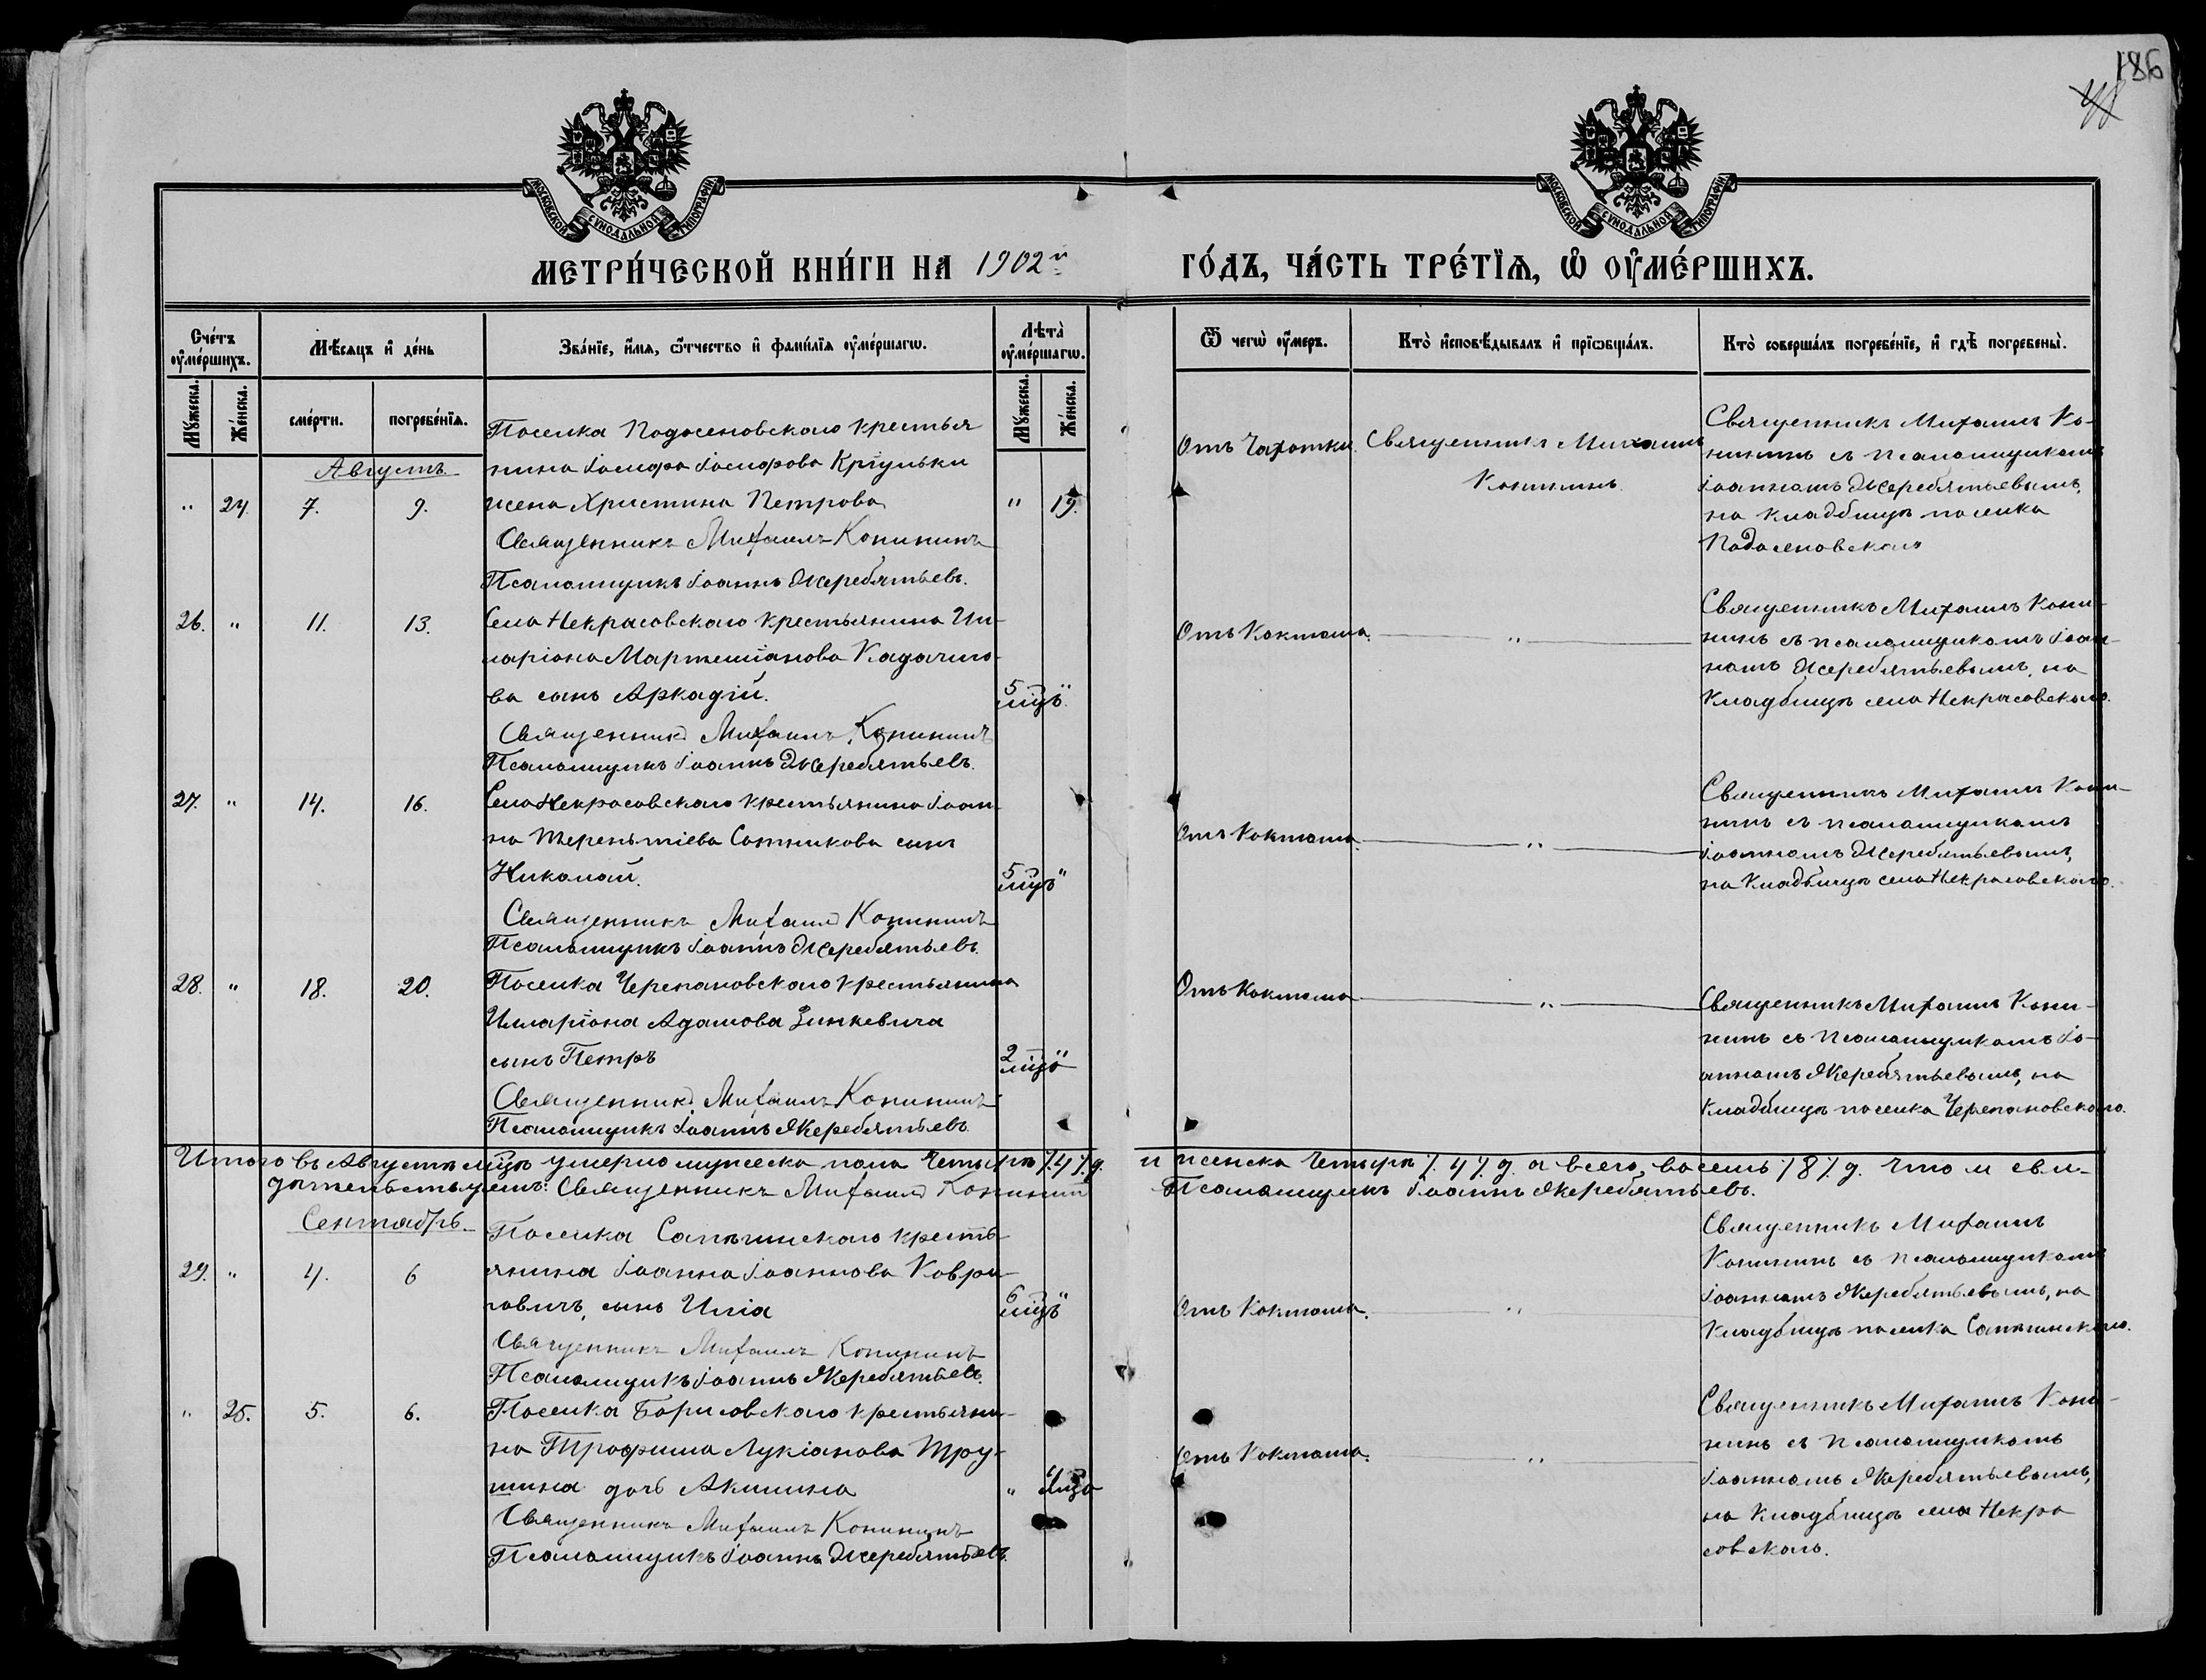 186
МОСКОВСКОЙ СѴНОДАЛЬНОЙ ТИПОГРАФІИ
МОСКОВСКОЙ СѴНОДАЛЬНОЙ ТИПОГРАФІИ
МЕТРИ́ЧЕСКОЙ КНИ́ГИ НА 1902й ГО́ДЪ, ЧА́СТЬ ТРЕ́ТІѦ, Ѽ ОУ҆МЕ́РШИХЪ.
Сче́тъ оу҆ме́ршихъ.
Мꙋ́жеска.
Же́нска.
Мѣ́сѧцъ и҆ де́нь
сме́рти.
погребе́нїѧ.
Зва́нїе, и҆́мѧ, ѻ҆́тчество и҆ фами́лїѧ оу҆ме́ршагѡ.
Лѣ́та оу҆ме́ршагѡ.
Мꙋ́жеска.
Же́нска.
Ѿ чегѡ̀ оу҆́меръ.
Кто̀ и҆сповѣ́дывалъ и҆ прїѡбща́лъ.
Кто̀ соверша́лъ погребе́нїе, и҆ гдѣ̀ погребены̀.
Августъ
" 24. 7. 9.
Поселка Подосеновскаго крестья
нина Іосифа Іосифова Кргульки
жена Христина Петрова
" 19.
Священникъ Михаилъ Конининъ
Псаломщикъ Іоаннъ Жеребятьевъ.
Отъ Чахотки.
Священникъ Михаилъ
Конининъ.
Священникъ Михаилъ Ко-
нининъ съ псаломщикомъ
Іоанномъ Жеребятьевымъ,
на кладбищѣ поселка
Подосеновскаго
26. " 11. 13.
Села Некрасовскаго крестьянина Ил-
ларіона Мартеміанова Кадочни-
ва сынъ Аркадій.
5 мцъ "
Священникъ Михаилъ Конининъ
Псаломщикъ Іоаннъ Жеребятьевъ.
Отъ Коклюша. "
Священникъ Михаилъ Кони-
нинъ съ псаломщикомъ Іоан-
номъ Жеребятьевымъ, на
кладбищѣ села Некрасовскаго.
27. " 14. 16.
Села Некрасовскаго крестьянина Іоан-
на Терентіева Сотникова сынъ
Николай.
5 мцъ "
Священникъ Михаилъ Конининъ
Псаломщикъ Іоаннъ Жеребятьевъ.
Отъ Коклюша. "
Священникъ Михаилъ Кони-
нинъ съ псаломщикомъ
Іоанномъ Жеребятьевымъ,
на кладбищѣ села Некрасовскаго.
28. " 18. 20.
Поселка Черепановскаго крестьянина
Илларіона Адамова Зинкевича
сынъ Петръ
2 мцъ "
Священникъ Михаилъ Конининъ
Псаломщикъ Іоаннъ Жеребятьевъ
Отъ Коклюша "
Священникъ Михаилъ Кони-
нинъ съ псаломщикомъ Іо-
анномъ Жеребятьевымъ, на
кладбищѣ поселка Черепановскаго.
Итого въ Августѣ мцѣ умерло мужеска пола четыре /.4/. д. и женска четыре /. 4/. д. а всего, восемь /8/. д. что и сви-
дѣтельствуемъ: Священникъ Михаилъ Конининъ Псаломщикъ Іоаннъ Жеребятьевъ.
Сентябрь.
29. " 4. 6
Поселка крестья-
янина Іоанна Іоаннова Коври-
сынъ Илія
6 мцъ "
Священникъ Михаилъ Конининъ
Псаломщикъ Іоаннъ Жеребятьевъ.
Отъ Коклюша. "
Священникъ Михаилъ
Конининъ съ псаломщикомъ
Іоанномъ Жеребятьевымъ, на
кладбищѣ поселка
" 25. 5. 6.
Поселка Борисовскаго крестьяни-
на Трофима Лукіанова Тру-
шина дочь Акилина
"
Священникъ Михаилъ Конининъ
Псаломщикъ Іоаннъ Жеребятьевъ.
Отъ Коклюша. "
Священникъ Михаилъ Кони-
нинъ съ псаломщикомъ
Іоанномъ Жеребятьевымъ,
на кладбищѣ села Некра
совскаго.